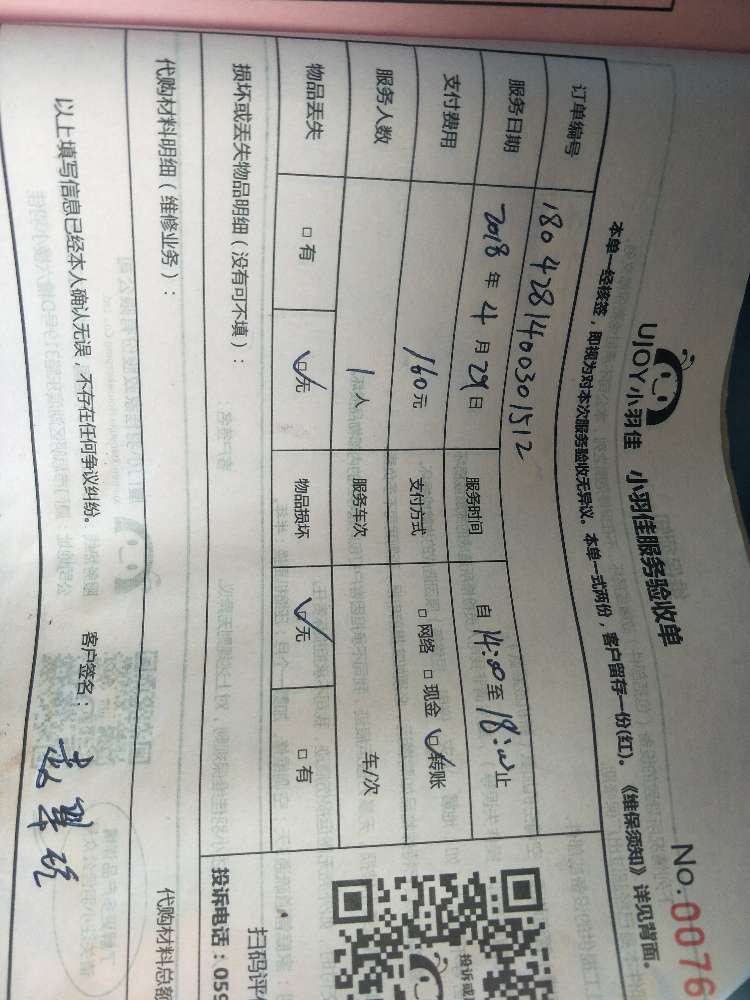 UJOY小羽佳 小羽佳服务验收单 No.0076
本单一经核签，即视为对本次服务验收无异议。本单一式两份，客户留存一份(红)。《维保须知》详见背面。
订单编号 1804281400301512
服务日期 2018年4月29日 服务时间 自14:00至18:00止
支付费用 160元 支付方式 □网络 □现金 ☑转账
服务人数 1人 服务车次 车/次
物品丢失 □有 ☑无 物品损坏 ☑无 □有
损坏或丢失物品明细（没有可不填）：
扫码评
投诉电话：059
代购材料明细（维修业务）： 代购材料总额
以上填写信息已经本人确认无误，不存在任何争议纠纷。 客户签名：